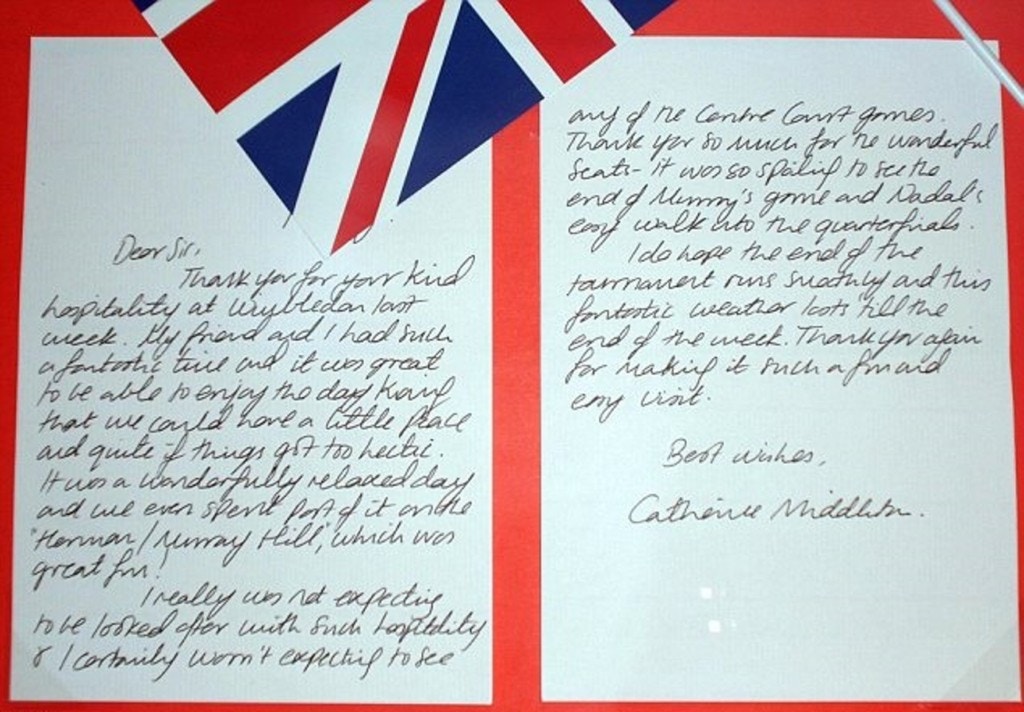 Dear Sir,
Thank you for your kind
hospitality at Wimbledon last
week. My friend and I had such
a fantastic time and it was great
to be able to enjoy the day knowing
that we could have a little peace
and quite if things got too hectic.
It was a wonderfully relaxed day
and we even spent part of it on the
"Henman / Murray Hill", which was
great fun!
I really was not expecting
to be looked after with such hospitality
& I certainly wasn't expecting to see
any of the Centre Court games.
Thank you so much for the wonderful
seats - it was so spoiling to see the
end of Murray's game and Nadal's
easy walk into the quarterfinals.
I do hope the end of the
tournament runs smoothly and this
fantastic weather lasts till the
end of the week. Thank you again
for making it such a fun and
easy visit.
Best wishes,
Catherine Middleton.